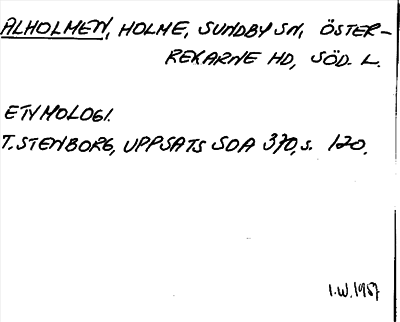 ALHOLMEN, HOLME, SUNDBY SN, ÖSTER-
REKARNE HD, SÖD. L.
ETYMOLOGI.
T. STENBORG, UPPSATS SOA 370, s. 120.
I.W. 1957